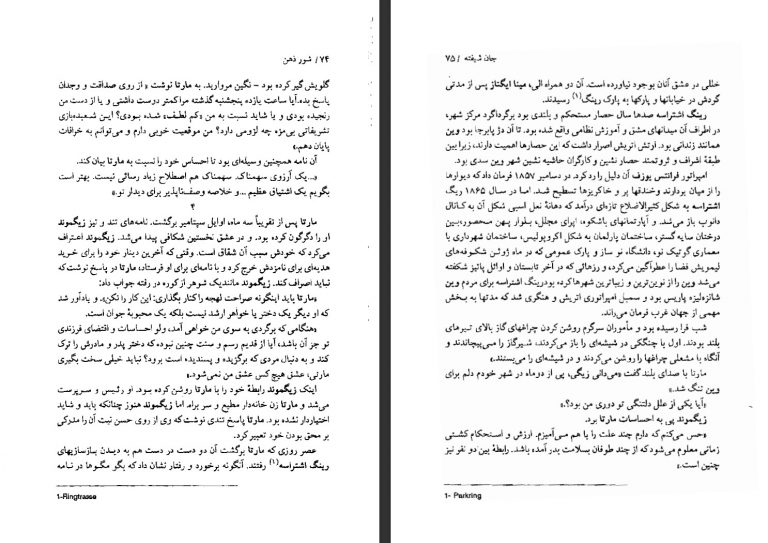 ۷۴ / شور ذهن
گلویش گیر کرده بود – نگین مروارید. به مارتا نوشت « از روی صداقت و وجدان
پاسخ بده. آیا ساعت یازده پنجشنبه گذشته مرا کمتر دوست داشتی و یا از دست من
رنجیده بودی و یا شاید نسبت به من «کم لطف» شده بودی؟ این شعبده‌بازی
تشریفاتی بی‌مزه چه لزومی دارد؟ من موقعیت خوبی دارم و می‌توانم به خرافات
پایان دهم.»
آن نامه همچنین وسیله‌ای بود تا احساس خود را نسبت به مارتا بیان کند.
«... یک آرزوی سهمناک. سهمناک هم اصطلاح زیاد رسائی نیست. بهتر است
بگویم یک اشتیاق عظیم ... و خلاصه وصف‌ناپذیر برای دیدار تو.»
۴
مارتا پس از تقریباً سه ماه، اوایل سپتامبر برگشت. نامه‌های تند و تیز زیگموند
او را دگرگون کرده بود. و در عشق نخستین شکافی پیدا می‌شد. زیگموند اعتراف
می‌کرد که خودش سبب آن شقاق است. وقتی که آخرین دینار خود را برای خرید
هدیه‌ای برای نامزدش خرج کرد و با نامه‌ای برای او فرستاد، مارتا در پاسخ نوشت که
نباید اصراف کند. زیگموند مانند یک شوهر از کوره در رفته جواب داد:
«مارتا باید اینگونه صراحت لهجه را کنار بگذاری: این کار را نکن، و یادآور شد
که او دیگر یک دختر یا خواهر ارشد نیست، بلکه یک محبوبهٔ جوان است.
«هنگامی که برگردی به سوی من خواهی آمد، ولو احساسات و اقتضای فرزندی
تو جز آن باشد، آیا از قدیم رسم و سنت چنین نبوده که دختر پدر و مادرش را ترک
کند و به دنبال مردی که برگزیده و پسندیده است برود؟ نباید خیلی سخت بگیری
مارتی، عشق هیچ کس عشق من نمی‌شود.»
اینک زیگموند رابطهٔ خود را با مارتا روشن کرده بود. او رئیس و سرپرست
می‌شد و مارتا زن خانه‌دار مطیع و سر براه. اما زیگموند هنوز چنانکه باید و شاید
اختیاردار نشده بود. مارتا پاسخ تندی نوشت که وی از روی حسن نیت آن را مدرکی
بر محق بودن خود تعبیر کرد.
عصر روزی که مارتا برگشت آن دو دست در دست هم به دیدن بازسازیهای
رینگ اشتراسه(۱) رفتند. آنگونه برخورد و رفتار نشان داد که بگر مگوها در نامه
1-Ringtrasse
جان شیفته / ۷۵
خللی در عشق آنان بوجود نیاورده است. آن دو همراه الی، مینا ایگناز پس از مدتی
گردش در خیابانها و پارکها به پارک رینگ(۱) رسیدند.
رینگ اشتراسه صدها سال حصار مستحکم و بلندی بود برگرداگرد مرکز شهر،
در اطراف آن میدانهای مشق و آموزش نظامی واقع شده بود. تا آن دژ پابرجا بود وین
همانند زندانی بود. اوتش اتریش اصرار داشت که این حصارها اهمیت دارند، زیرا بین
طبقهٔ اشراف و ثروتمند حصار نشین و کارگران حاشیه نشین شهر وین سدی بود.
امپراتور فرانتس یوزف آن دلیل را رد کرد. در دسامبر ۱۸۵۷ فرمان داد که دیوارها
را از میان بردارند و خندقها پر و خاکریزها تسطیح شد. اما در سال ۱۸۶۵ رینگ
اشتراسه به شکل کثیرالاضلاع تازه‌ای درآمد که دهانهٔ نعل اسبی شکل آن به کانال
دانوب باز می‌شد. و آپارتمانهای باشکوه، اپرای مجلل، بلوار پهن محصور بین
درختان سایه گستر، ساختمان پارلمان به شکل اکروپولیس، ساختمان شهرداری با
معماری گوتیک نو، دانشگاه نو ساز و پارک عمومی که در ماه ژوئن شکوفه‌های
لیمویش فضا را عطرآگین می‌کرد، و رزهائی که در آخر تابستان و اوائل پائیز شکفته
می‌شد وین را از نوین‌ترین و زیباترین شهرها کرده بود رینگ اشتراسه برای مردم وین
شانزه‌لیزه پاریس بود و سمبل امپراتوری اتریش و هنگری شد که مدتها به بخش
مهمی از جهان غرب فرمان می‌راند.
شب فرا رسیده بود و مأموران سرگرم روشن کردن چراغهای گاز بالای تیرهای
بلند بودند. اول با چنگکی در شیشه‌ای را باز می‌کردند، شیر گاز را می‌پیچاندند و
آنگاه با مشعلی چراغها را روشن می‌کردند و در شیشه‌ای را می‌بستند.»
مارتا با صدای بلند گفت «می‌دانی زیگی، پس از دو ماه در شهر خودم دلم برای
وین تنگ شد.»
«آیا یکی از علل دلتنگی تو دوری من بود؟.»
زیگموند پی به احساسات مارتا بود.
«حس می‌کنم که دارم چند علت را با هم می‌آمیزم. ارزش و استحکام کشتی
زمانی معلوم می‌شود که از چند طوفان بسلامت بدر آمده باشد. رابطهٔ بین دو نفر نیز
چنین است.»
1- Parkring